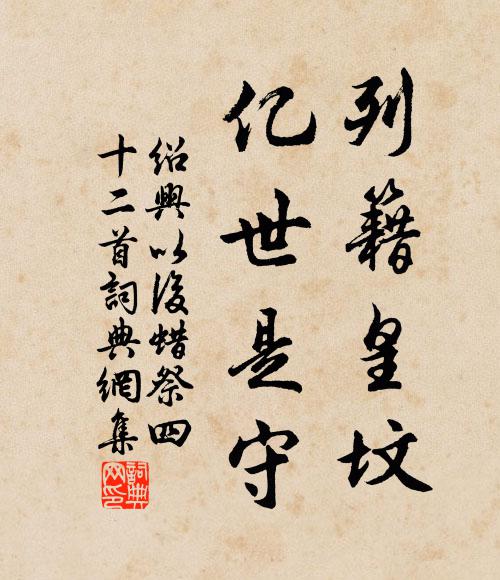 列籍皇坟
亿世是守
绍興以後蜡祭四
十二首詞典網集
詞典网印